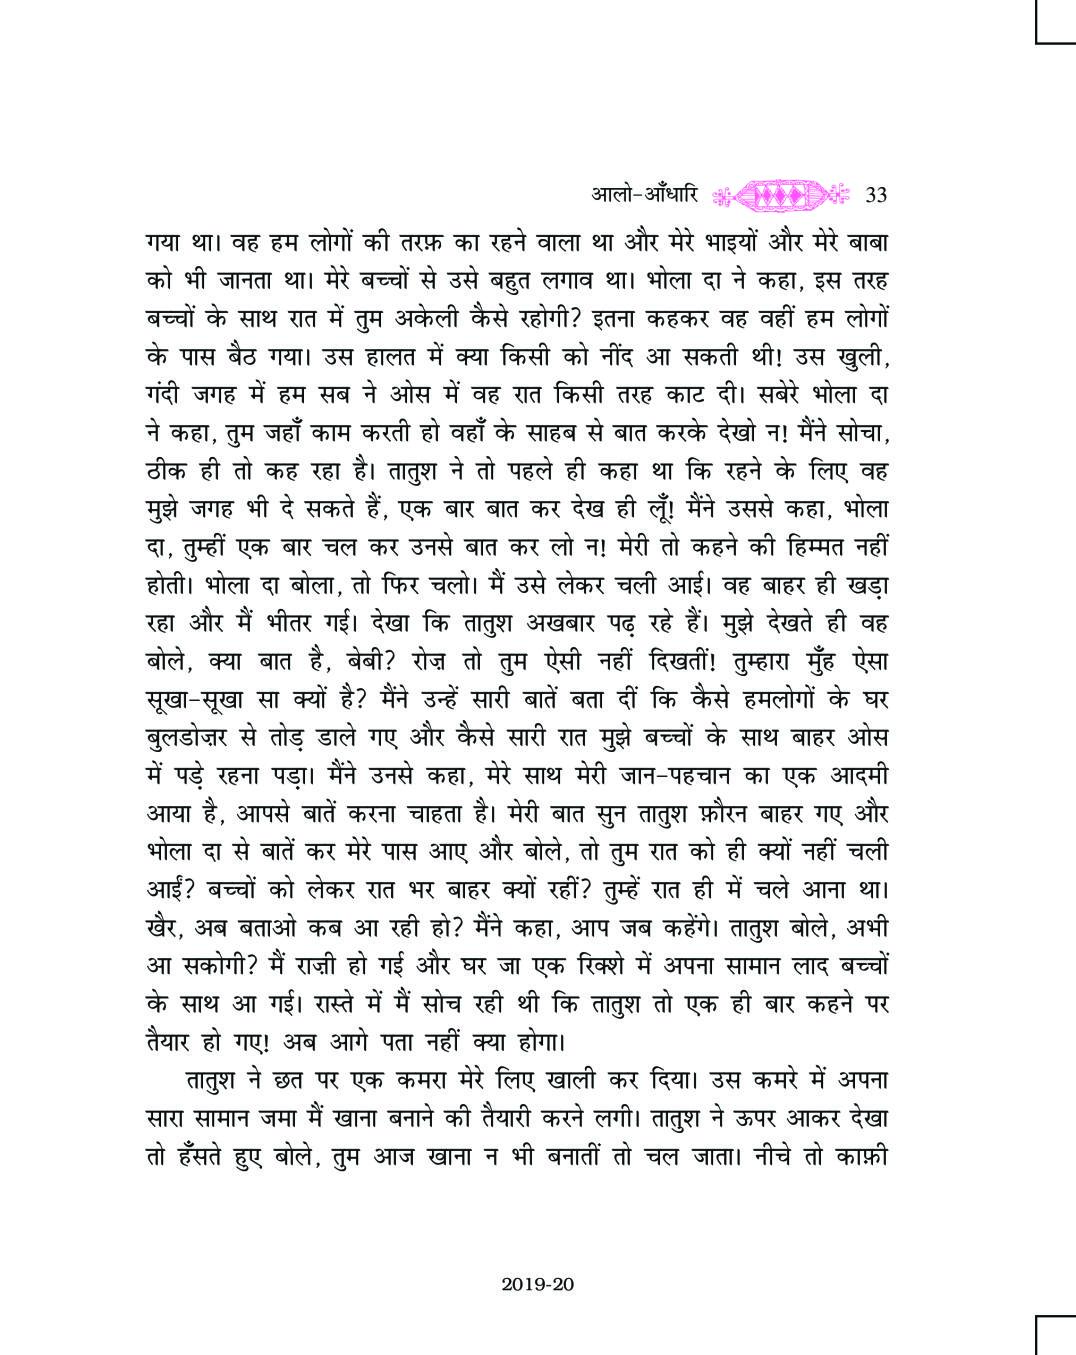 आलो-आँधारि 33
गया था। वह हम लोगों की तरफ़ का रहने वाला था और मेरे भाइयों और मेरे बाबा
को भी जानता था। मेरे बच्चों से उसे बहुत लगाव था। भोला दा ने कहा, इस तरह
बच्चों के साथ रात में तुम अकेली कैसे रहोगी? इतना कहकर वह वहीं हम लोगों
के पास बैठ गया। उस हालत में क्या किसी को नींद आ सकती थी! उस खुली,
गंदी जगह में हम सब ने ओस में वह रात किसी तरह काट दी। सबेरे भोला दा
ने कहा, तुम जहाँ काम करती हो वहाँ के साहब से बात करके देखो न! मैंने सोचा,
ठीक ही तो कह रहा है। तातुश ने तो पहले ही कहा था कि रहने के लिए वह
मुझे जगह भी दे सकते हैं, एक बार बात कर देख ही लूँ! मैंने उससे कहा, भोला
दा, तुम्हीं एक बार चल कर उनसे बात कर लो न! मेरी तो कहने की हिम्मत नहीं
होती। भोला दा बोला, तो फिर चलो। मैं उसे लेकर चली आई। वह बाहर ही खड़ा
रहा और मैं भीतर गई। देखा कि तातुश अखबार पढ़ रहे हैं। मुझे देखते ही वह
बोले, क्या बात है, बेबी? रोज़ तो तुम ऐसी नहीं दिखतीं! तुम्हारा मुँह ऐसा
सूखा-सूखा सा क्यों है? मैंने उन्हें सारी बातें बता दीं कि कैसे हमलोगों के घर
बुलडोज़र से तोड़ डाले गए और कैसे सारी रात मुझे बच्चों के साथ बाहर ओस
में पड़े रहना पड़ा। मैंने उनसे कहा, मेरे साथ मेरी जान-पहचान का एक आदमी
आया है, आपसे बातें करना चाहता है। मेरी बात सुन तातुश फ़ौरन बाहर गए और
भोला दा से बातें कर मेरे पास आए और बोले, तो तुम रात को ही क्यों नहीं चली
आईं? बच्चों को लेकर रात भर बाहर क्यों रहीं? तुम्हें रात ही में चले आना था।
खैर, अब बताओ कब आ रही हो? मैंने कहा, आप जब कहेंगे। तातुश बोले, अभी
आ सकोगी? मैं राज़ी हो गई और घर जा एक रिक्शे में अपना सामान लाद बच्चों
के साथ आ गई। रास्ते में मैं सोच रही थी कि तातुश तो एक ही बार कहने पर
तैयार हो गए! अब आगे पता नहीं क्या होगा।
तातुश ने छत पर एक कमरा मेरे लिए खाली कर दिया। उस कमरे में अपना
सारा सामान जमा मैं खाना बनाने की तैयारी करने लगी। तातुश ने ऊपर आकर देखा
तो हँसते हुए बोले, तुम आज खाना न भी बनातीं तो चल जाता। नीचे तो काफ़ी
2019-20